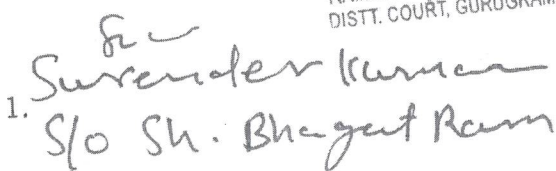 DISTT. COURT, GURUGRAM
1. Surender Kumar
S/o Sh. Bhagat Ram